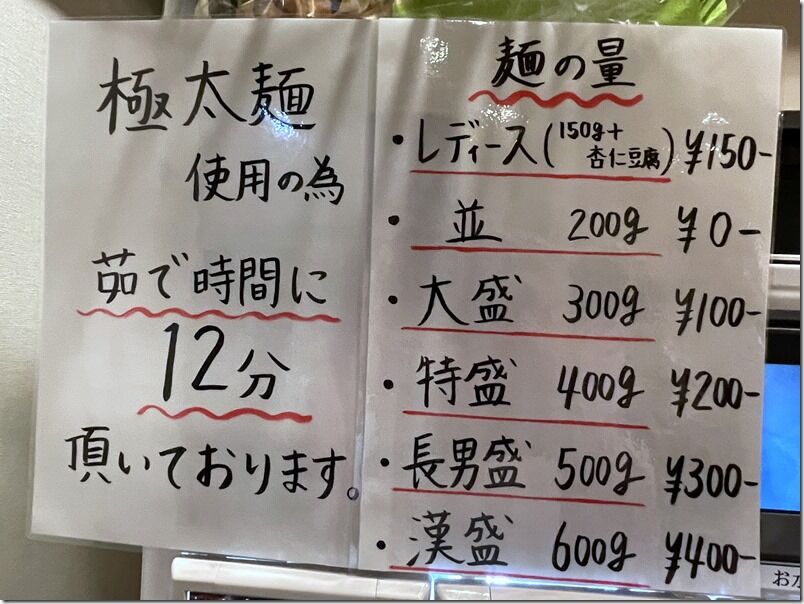 極太麺
使用の為
茹で時間に
12分
頂いております。
麺の量
・レディース(150g+杏仁豆腐) ¥150-
・並 200g ¥0-
・大盛 300g ¥100-
・特盛 400g ¥200-
・長男盛 500g ¥300-
・漢盛 600g ¥400-